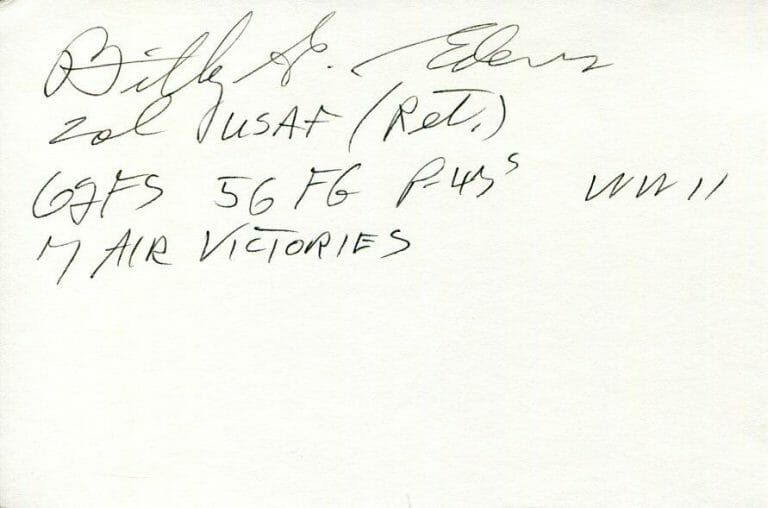 Billy G. Edens
Col USAF (Ret.)
62FS 56 FG P-47s WW II
7 AIR VICTORIES